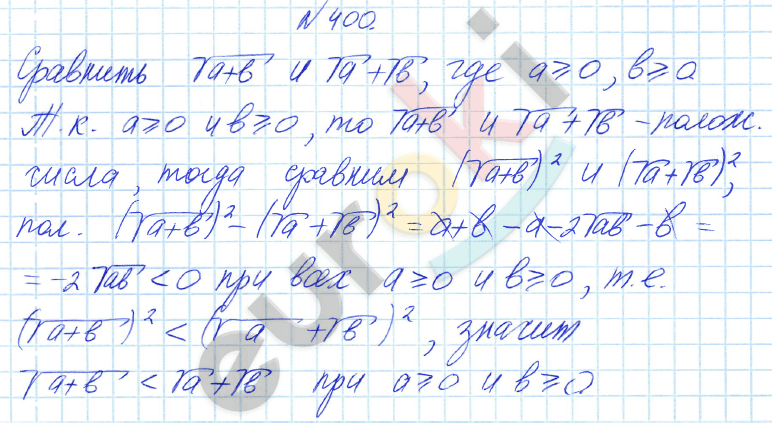 №400.
Сравнить √a+в и √a+√в, где a⩾0, в⩾0
Т.к. a⩾0 и в⩾0, то √a+в и √a+√в - полож.
числа, тогда сравним (√a+в)² и (√a+√в)²,
пол. (√a+в)² - (√a+√в)² = a+в - a - 2√aв - в =
= -2√aв < 0 при всех a⩾0 и в⩾0, т.е.
(√a+в)² < (√a + √в)², значит
√a+в < √a+√в при a⩾0 и в⩾0
euroki